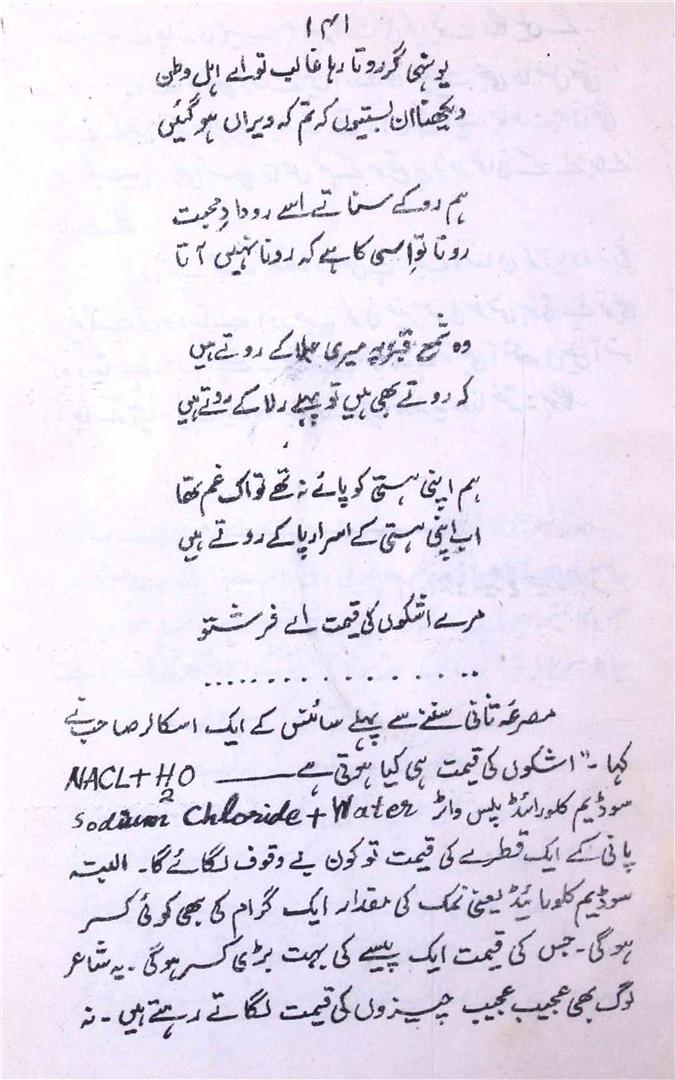 ۱۴۱
یونہی گر روتا رہا غالب تو اے اہل وطن
دیکھنا ان بستیوں کو تم کہ ویراں ہو گئیں
ہم رو کے سناتے اسے رودادِ محبت
رونا تو اسی کا ہے کہ رونا نہیں آتا
وہ شمع قبر پہ میری جلا کے روتے ہیں
کہ روتے بھی ہیں تو پہلے رلا کے روتے ہیں
ہم اپنی ہستی کو پائے نہ تھے تو اک غم تھا
اب اپنی ہستی کے اسرار پا کے روتے ہیں
مرے اشکوں کی قیمت اے فرشتو
. . . . . . . . . . . . . .
مصرعۂ ثانی سننے سے پہلے سائنس کے ایک اسکالر صاحب نے
کہا۔ "اشکوں کی قیمت ہی کیا ہوتی ہے ——— NACL + H2O
سوڈیم کلورائڈ پلس واٹر Sodium Chloride + Water
پانی کے ایک قطرے کی قیمت تو کون بے وقوف لگائے گا۔ البتہ
سوڈیم کلورائیڈ یعنی نمک کی مقدار ایک گرام کی بھی کوئی کسر
ہوگی۔ جس کی قیمت ایک پیسے کی بہت بڑی کسر ہوگی۔ یہ شاعر
لوگ بھی عجیب عجیب چیزوں کی قیمت لگاتے رہتے ہیں۔ نہ